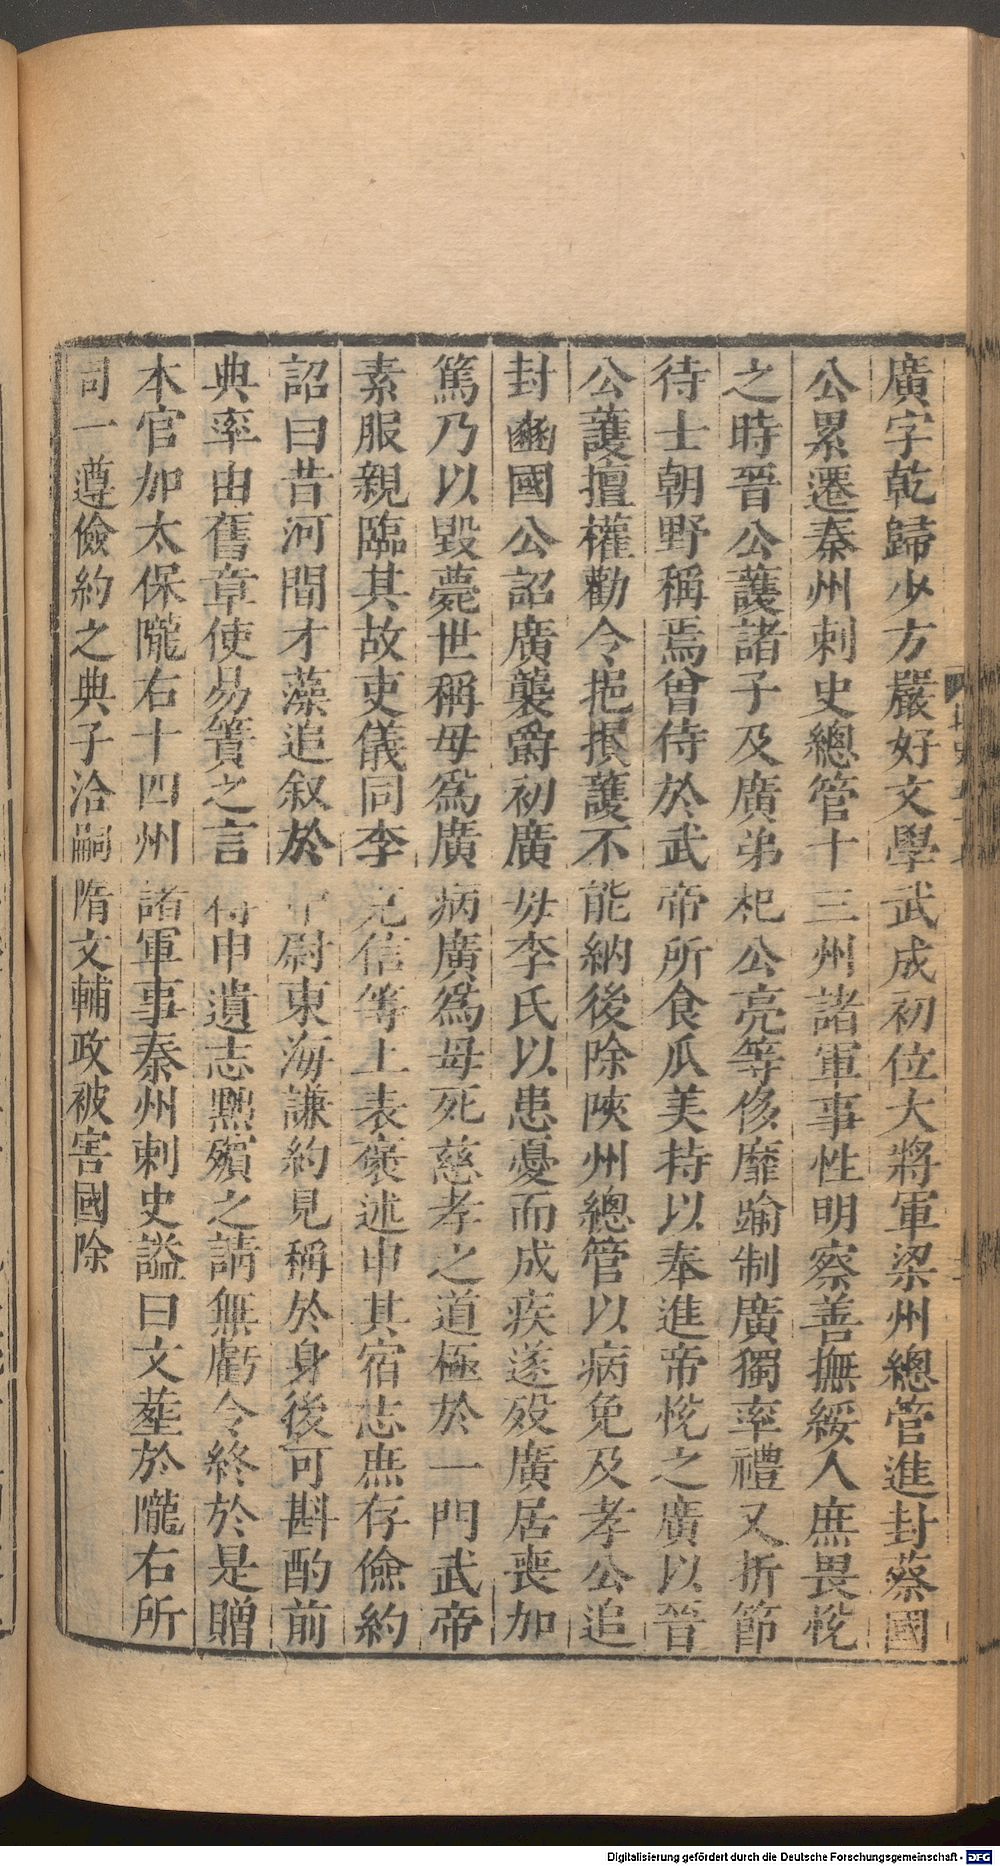 廣字乾歸少方嚴好文學武成初位大將軍梁州總管進封蔡國
公累遷秦州刺史總管十三州諸軍事性明察善撫綏人庶畏悅
之時晉公護諸子及廣弟杞公亮等侈靡踰制廣獨率禮又折節
待士朝野稱焉曾侍於武帝所食瓜美持以奉進帝悅之廣以晉
公護擅權勸令挹損護不能納後除陝州總管以病免及孝公追
封豳國公詔廣襲爵初廣母李氏以患憂而成疾遂歿廣居喪加
篤乃以毀薨世稱母爲廣病廣爲母死慈孝之道極於一門武帝
素服親臨其故吏儀同李充信等上表褒述申其宿志庶存儉約
詔曰昔河間才藻追叙於中尉東海謙約見稱於身後可斟酌前
典率由舊章使易簀之言得申遺志黜殯之請無虧令終於是贈
本官加太保隴右十四州諸軍事秦州刺史謚曰文葬於隴右所
司一遵儉約之典子洽嗣隋文輔政被害國除
Digitalisierung gefördert durch die Deutsche Forschungsgemeinschaft - DFG